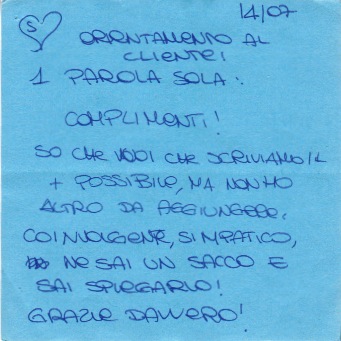 14/07
S
ORIENTAMENTO AL
CLIENTE!
1 PAROLA SOLA:
COMPLIMENTI!
SO CHE VUOI CHE SCRIVIAMO IL
+ POSSIBILE, MA NON HO
ALTRO DA AGGIUNGERE.
COINVOLGENTE, SIMPATICO,
NE SAI UN SACCO E
SAI SPIEGARLO!
GRAZIE DAVVERO!